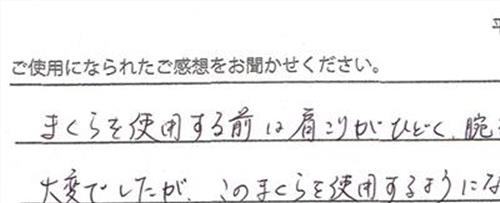 ご使用になられたご感想をお聞かせください。
まくらを使用する前は肩こりがひどく、腕
大変でしたが、このまくらを使用するようにな